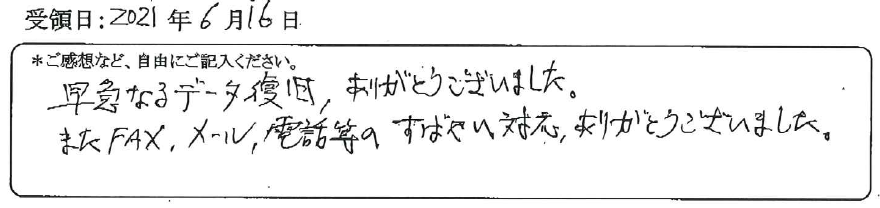 受領日:2021年6月16日
*ご感想など、自由にご記入ください。
早急なるデータ復旧,ありがとうございました。
またFAX,メール,電話等のすばやい対応,ありがとうございました。